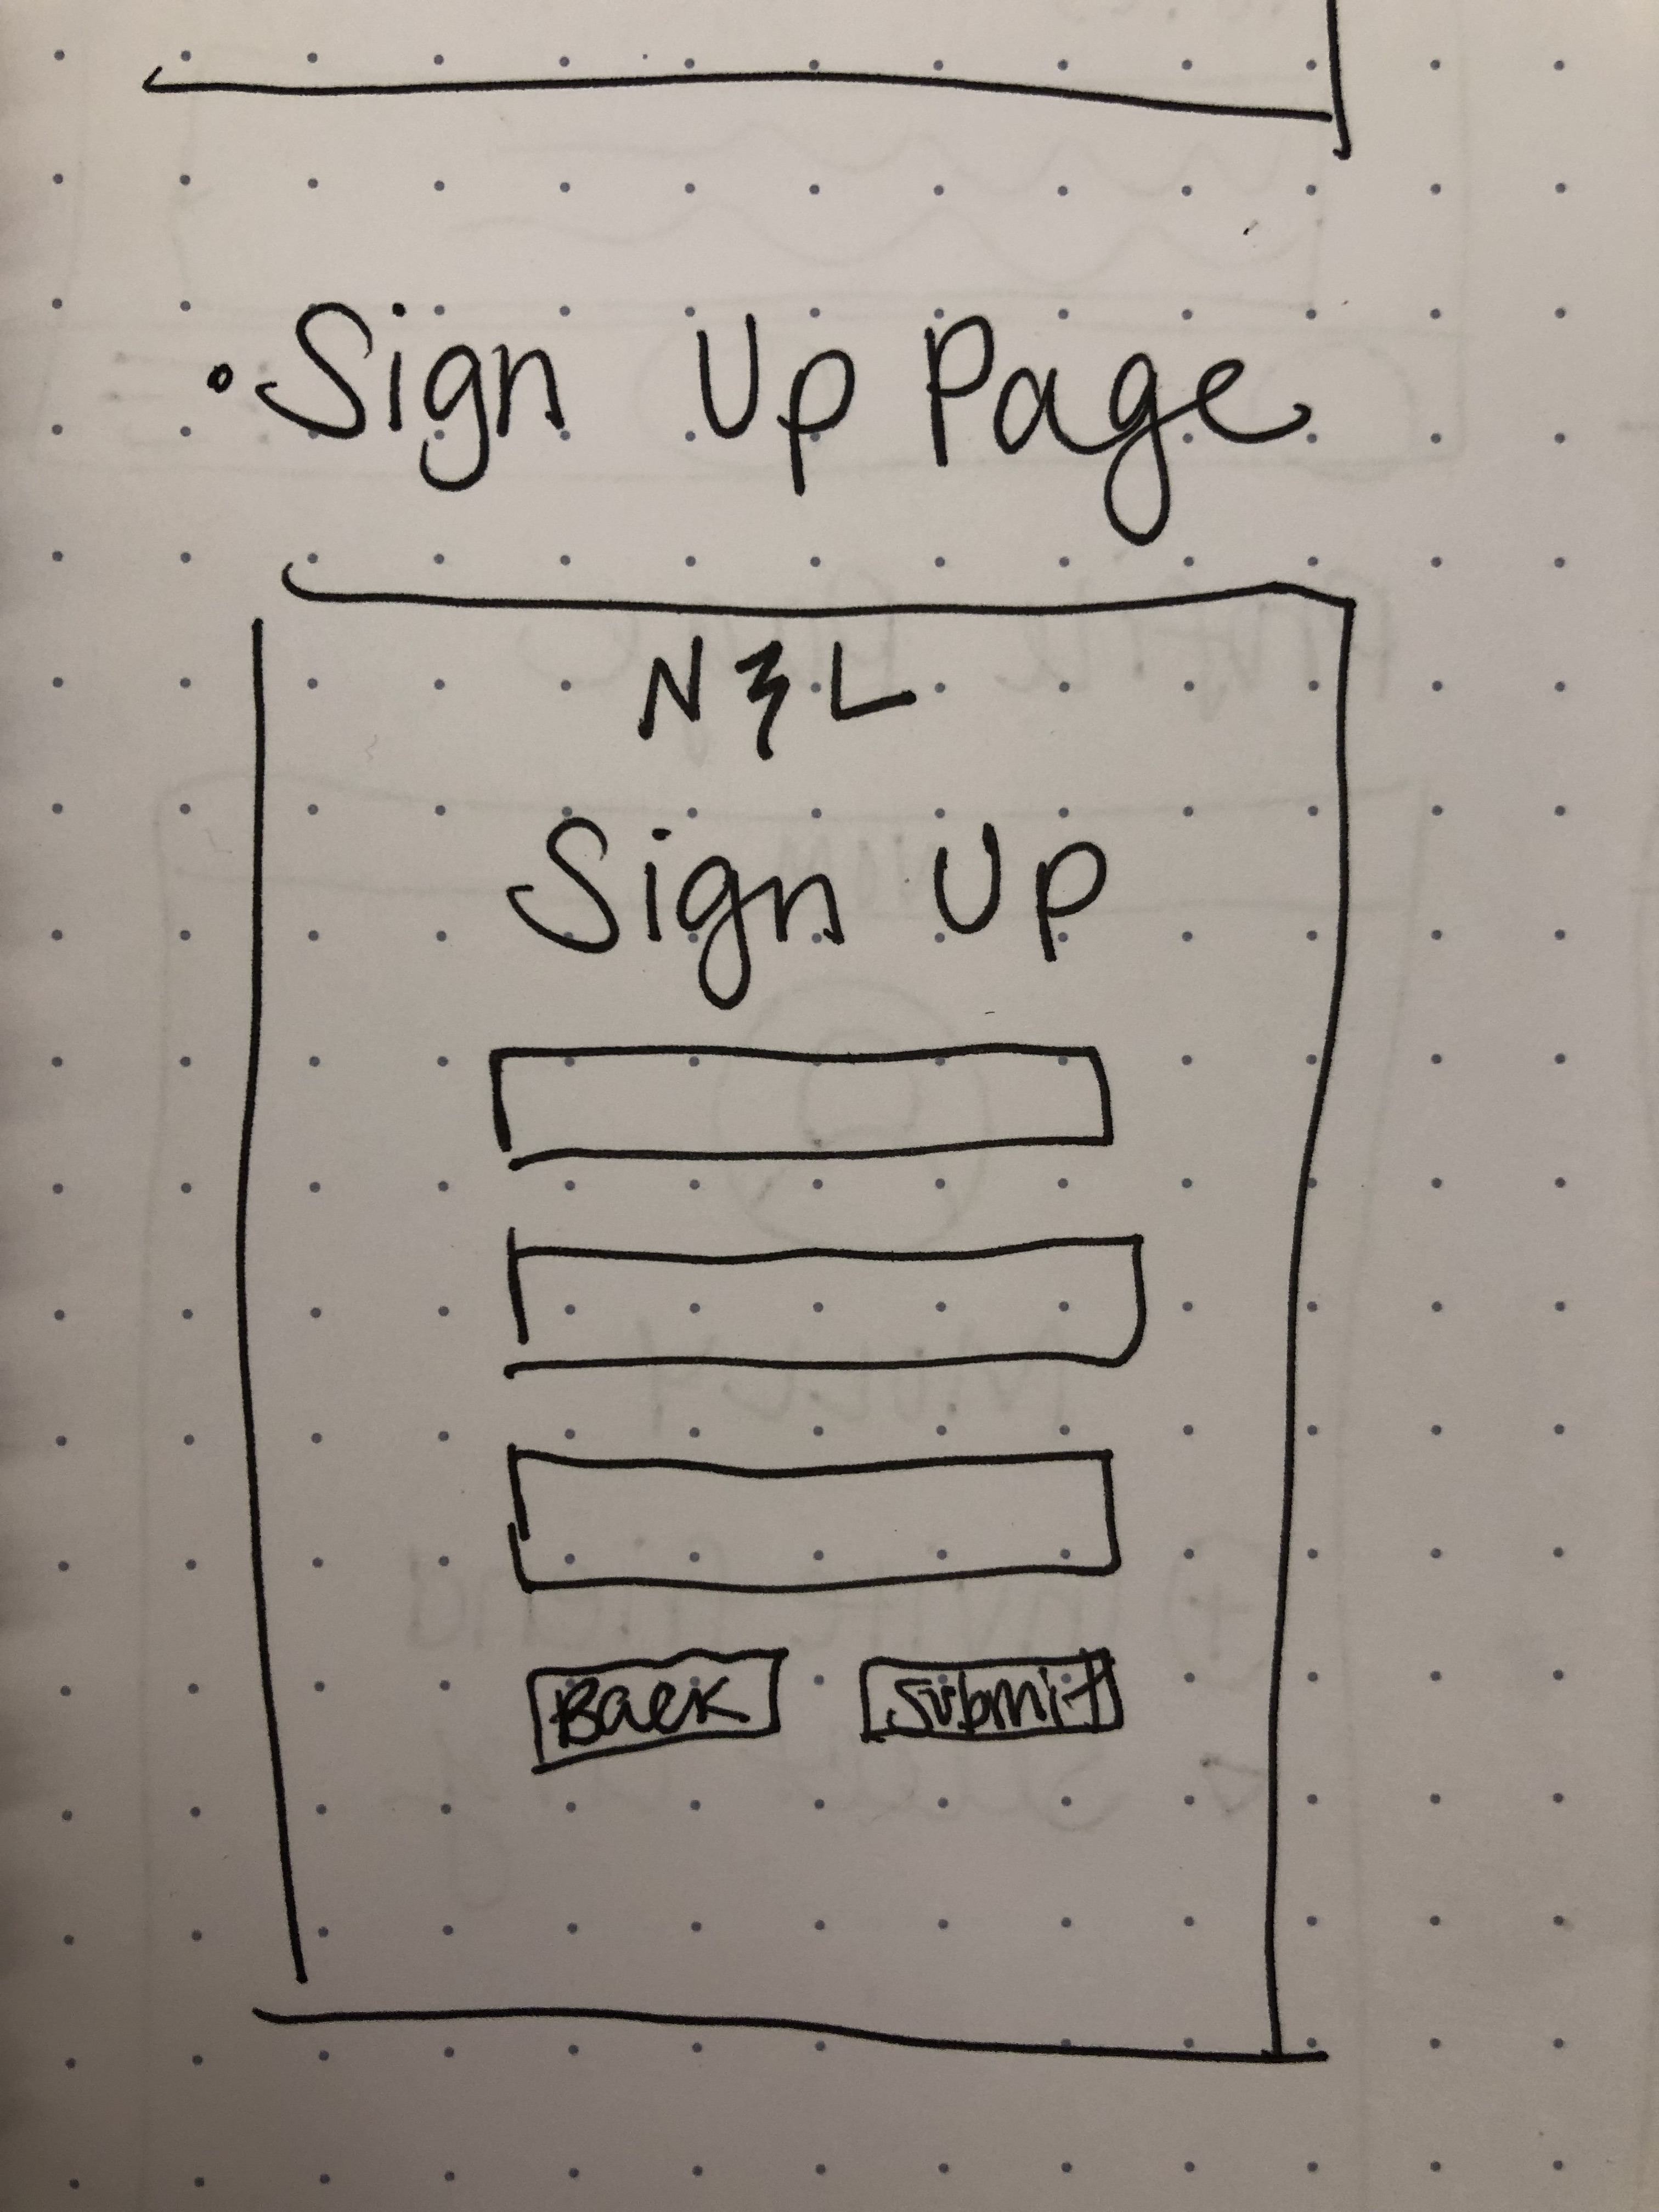 Sign Up Page
N & L
Sign Up
Back
Submit